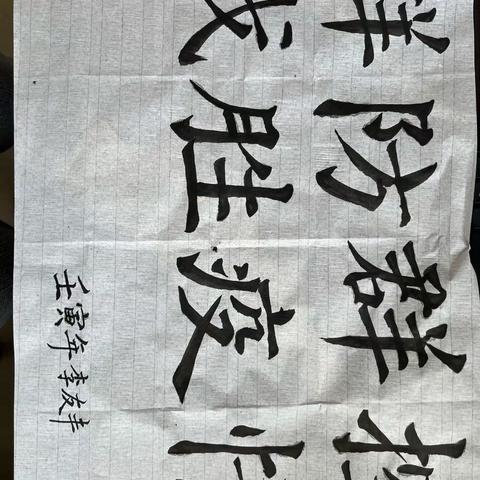 群防群控
战胜疫情
壬寅年李友丰